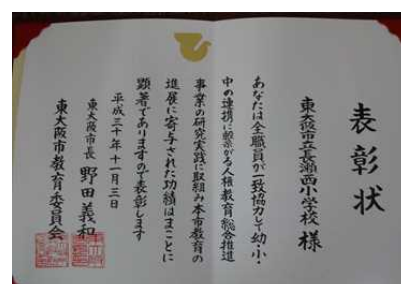 表彰状
東大阪市立長瀬西小学校 様
あなたは全職員が一致協力して幼・小・
中の連携に繋がる人権教育総合推進
事業の研究実践に取組み本市教育の
進展に寄与された功績はまことに
顕著でありますので表彰します
平成三十年十一月三日
東大阪市長 野田義和
東大阪市教育委員会